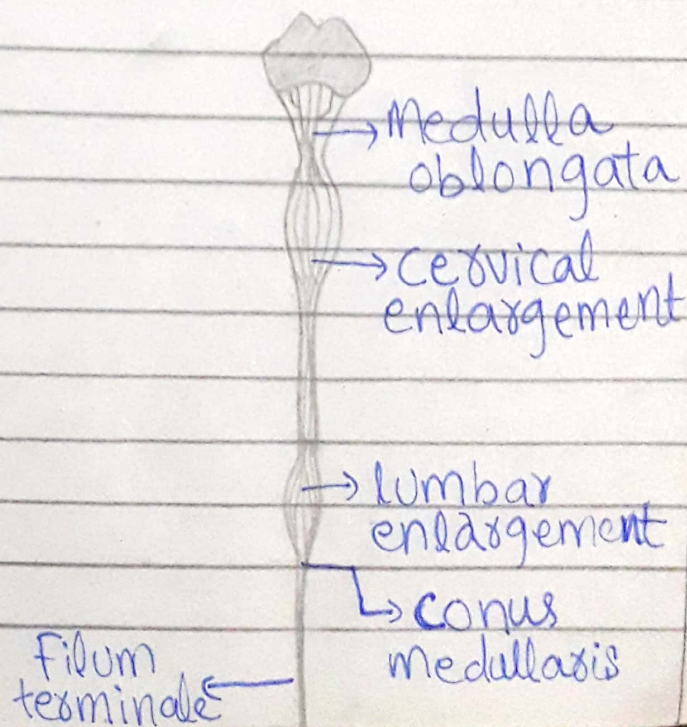 Medulla
oblongata
cervical
enlargement
lumbar
enlargement
conus
medullaris
filum
terminale